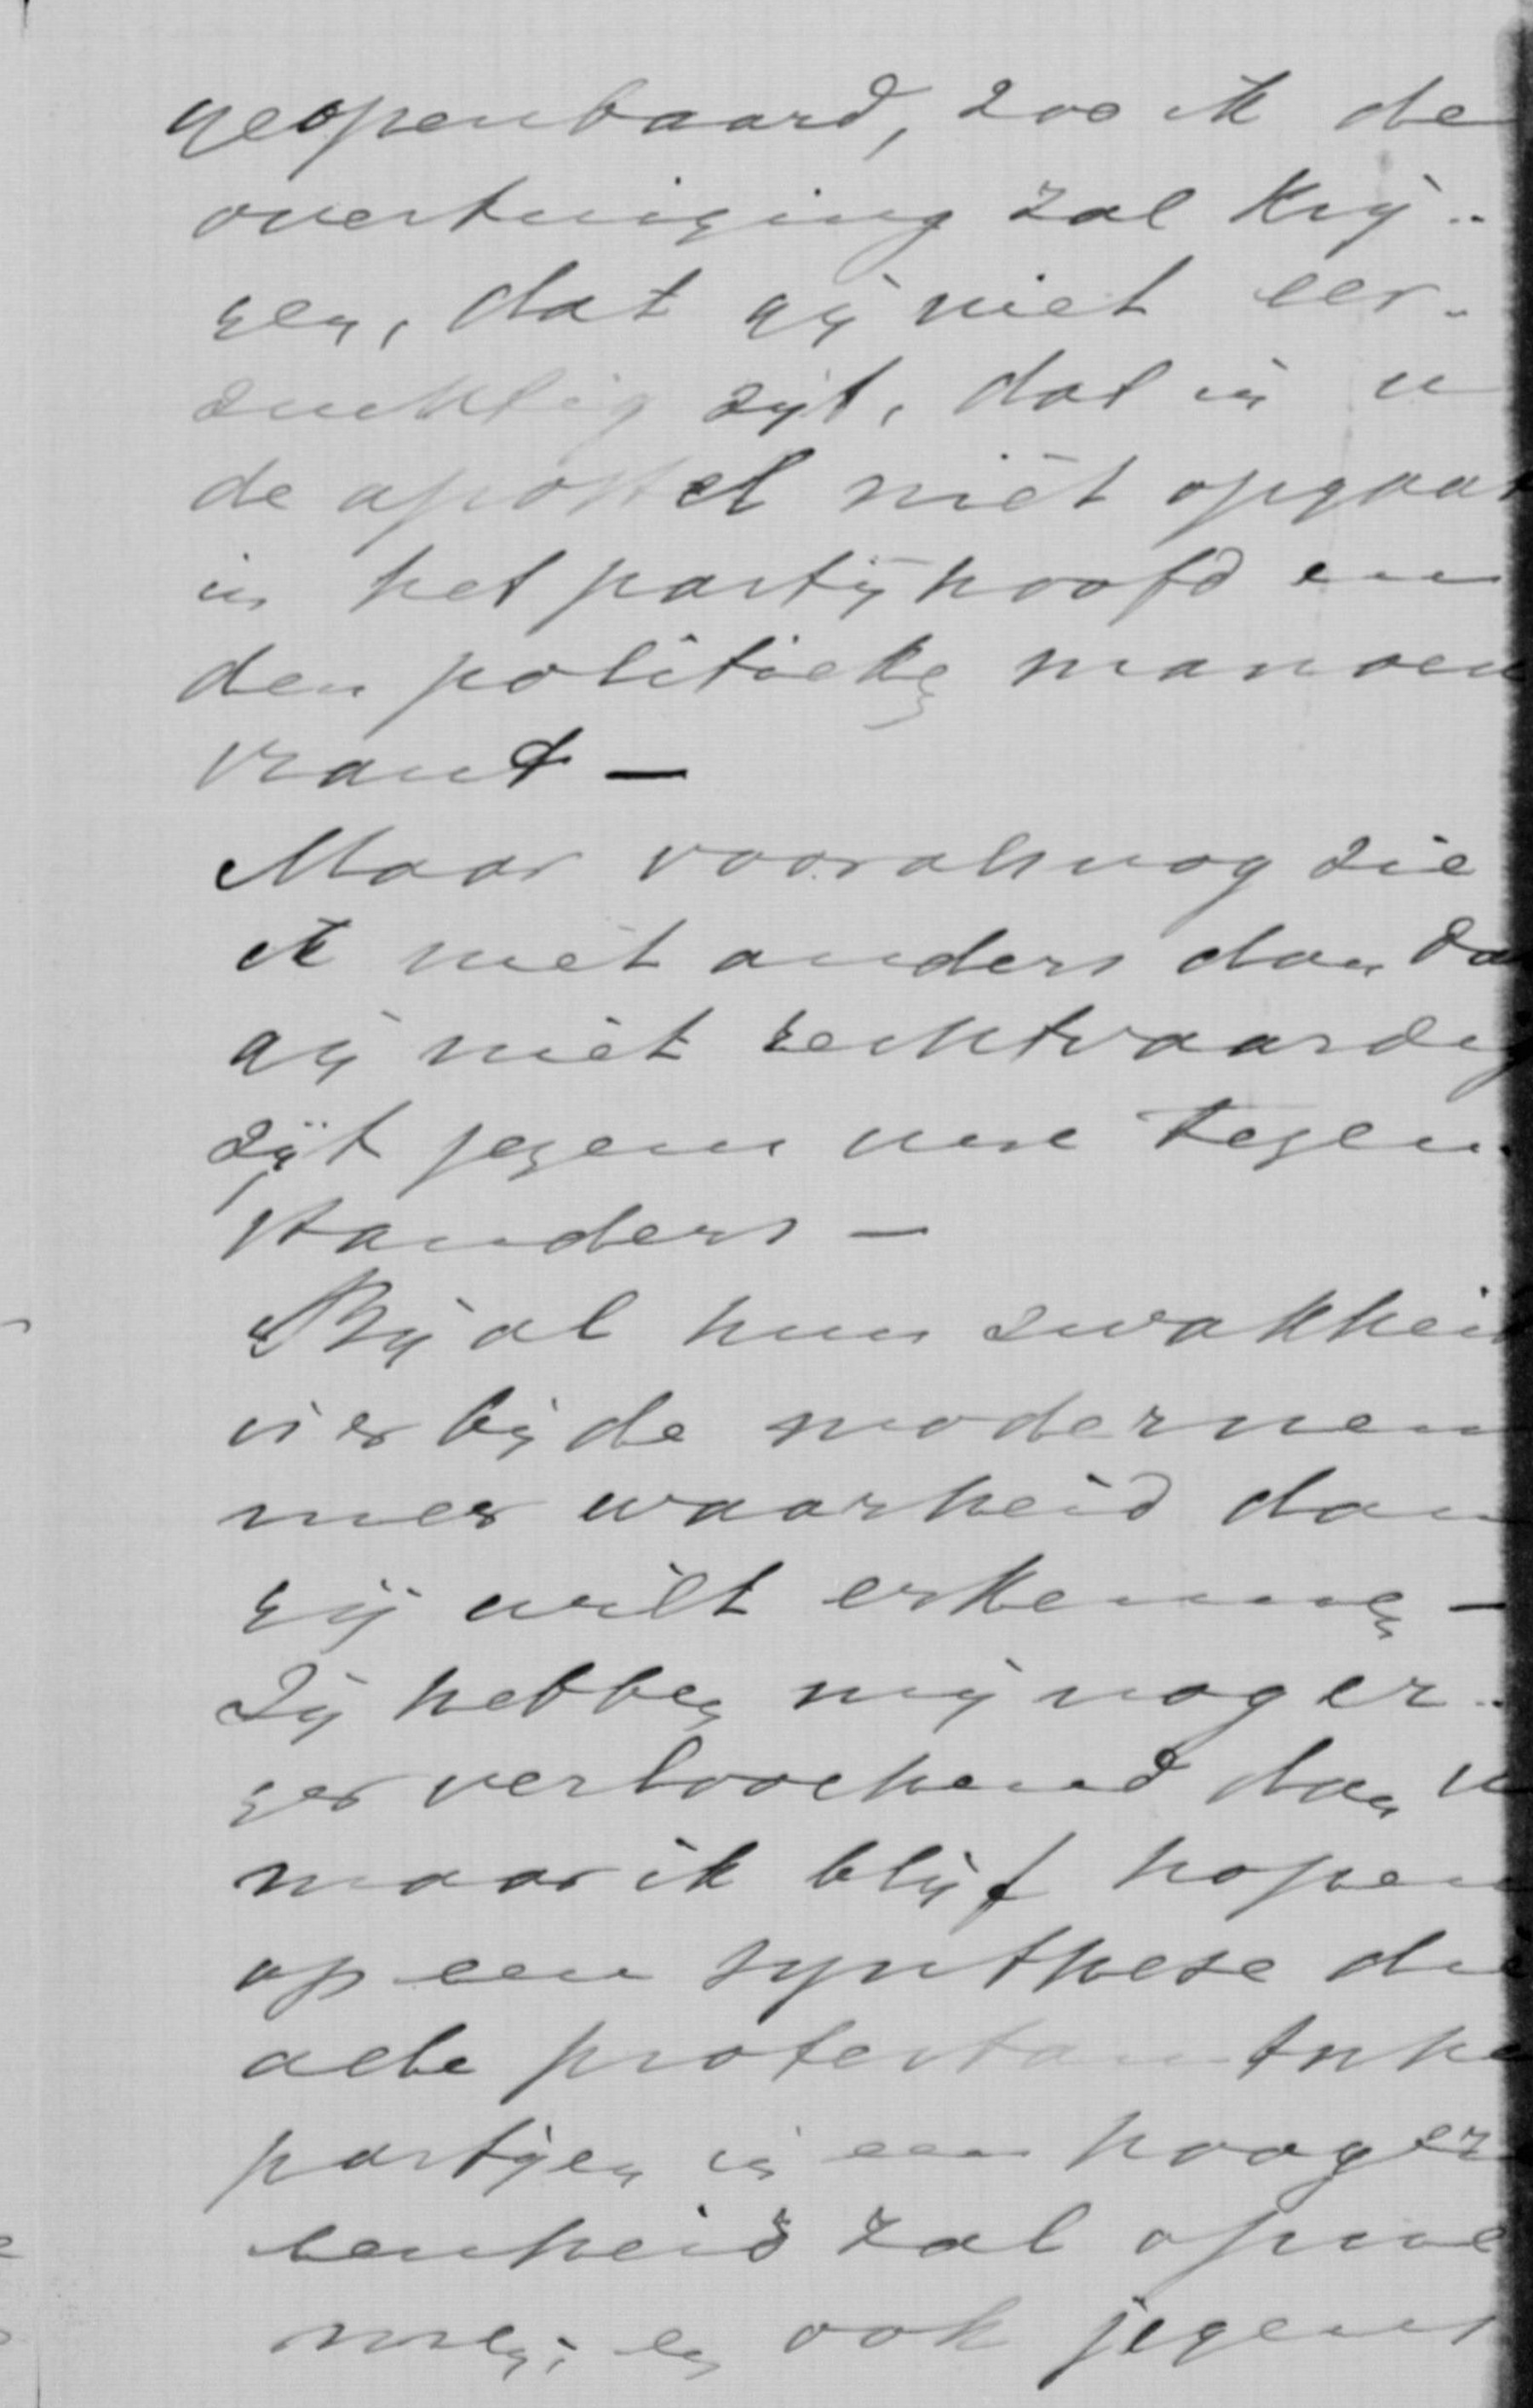 geopenbaard, zoo ik de
overtuiging zal krij-
gen, dat gij niet eer-
zuchtig zijt, dat in u
de apostel niet opgaat
in het partijhoofd en
den politieken manoeu
vrant —
Maar vooralsnog zie
ik niet anders dan da
gij niet rechtvaardig
zijt jegens uwe tegen-
standers —
Bij al hun zwakheid
is er bij de modernen
meer waarheid dan
gij wilt erkennen —
Zij hebben mij nog er-
ger verloochend dan u
maar ik blijf hopen
op een synthese die
alle protestantsche
partijen in een hooger
eenheid zal opne
men; en ook jegens